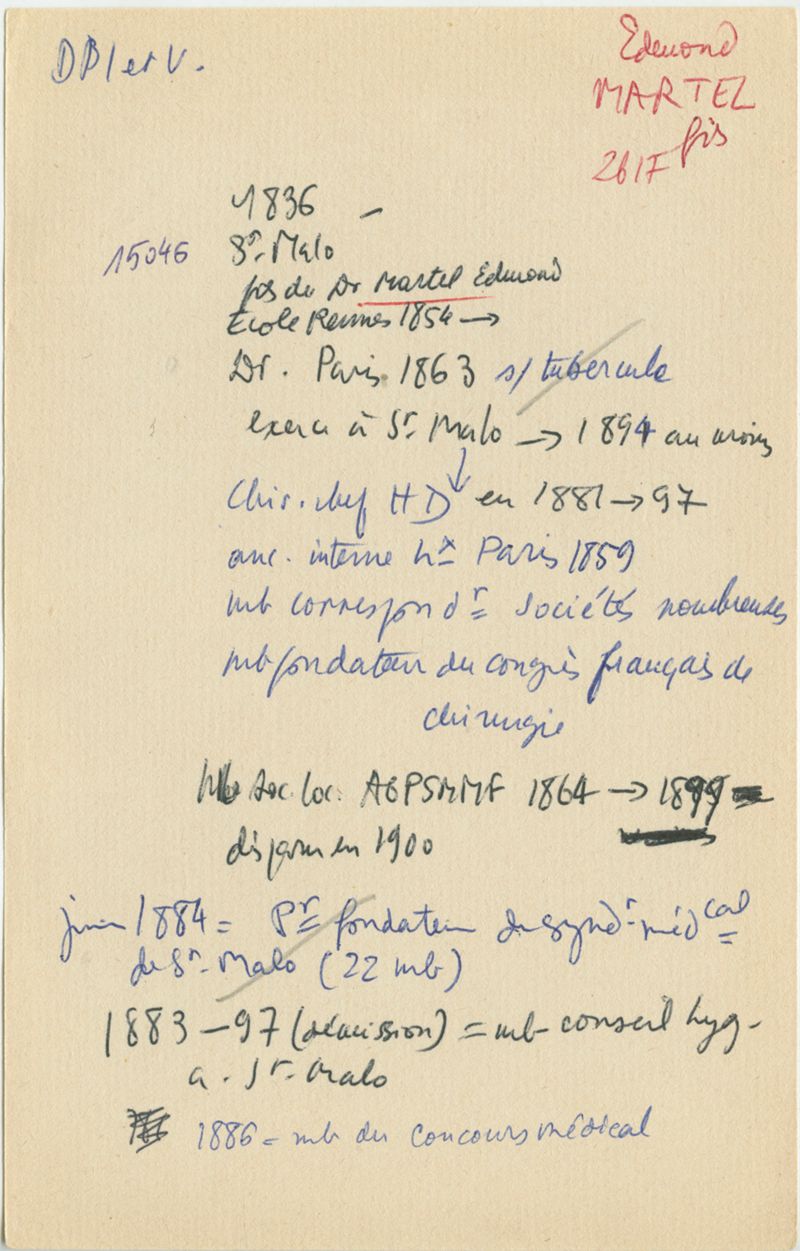 DP/etV.
Edmond
MARTEL
fils
2617
1836 –
15046 St-Malo
fils du Dr Martel Edmond
École Rennes 1854 →
Dr. Paris 1863 s/ tubercule
exerce à St Malo → 1894 au moins
Chir. chef HD en 1881 → 97
anc. interne hx Paris 1859
mb correspondr Sociétés nombreuses
mb fondateur du congrès français de
chirurgie
Mb Soc. loc. AGPSMMF 1864 → 1899
disparu en 1900
juin 1884 = Pr fondateur du syndt médcal
de St-Malo (22 mb)
1883 – 97 (démission) = mb conseil hyg-
à St-Malo
1886 = mb du concours médical